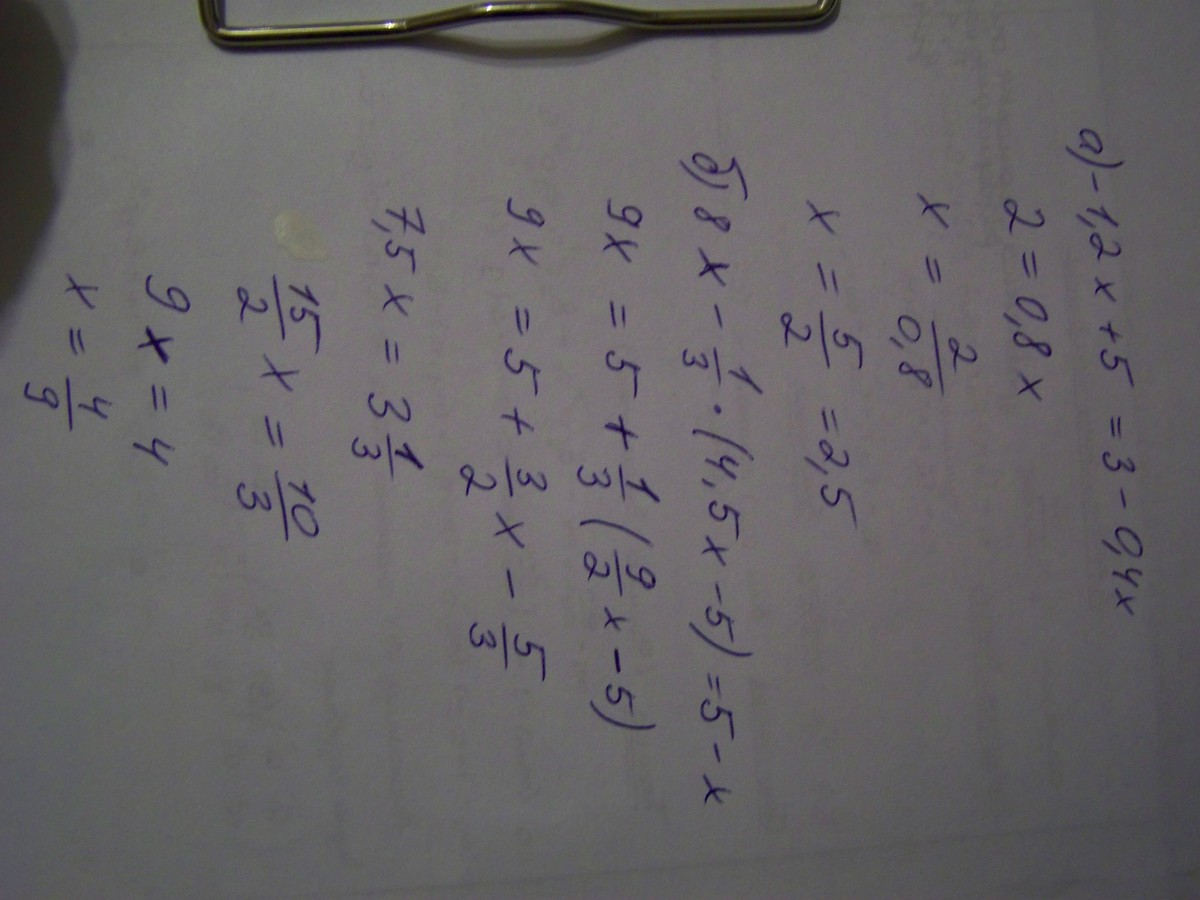 а) -1,2x + 5 = 3 - 0,4x
2 = 0,8x
x = 2/0,8
x = 5/2 = 2,5
б) 8x - 1/3 · (4,5x - 5) = 5 - x
9x = 5 + 1/3 (9/2 x - 5)
9x = 5 + 3/2 x - 5/3
7,5x = 3 1/3
15/2 x = 10/3
9x = 4
x = 4/9